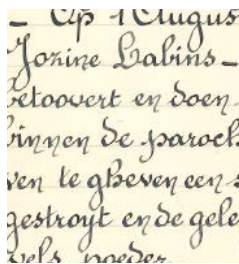 – Op 1 Augus
Jozine Labins –
betoovert en doen
binnen de paroch
ven te gheven een s
gestroyt ende gele
vels poeder